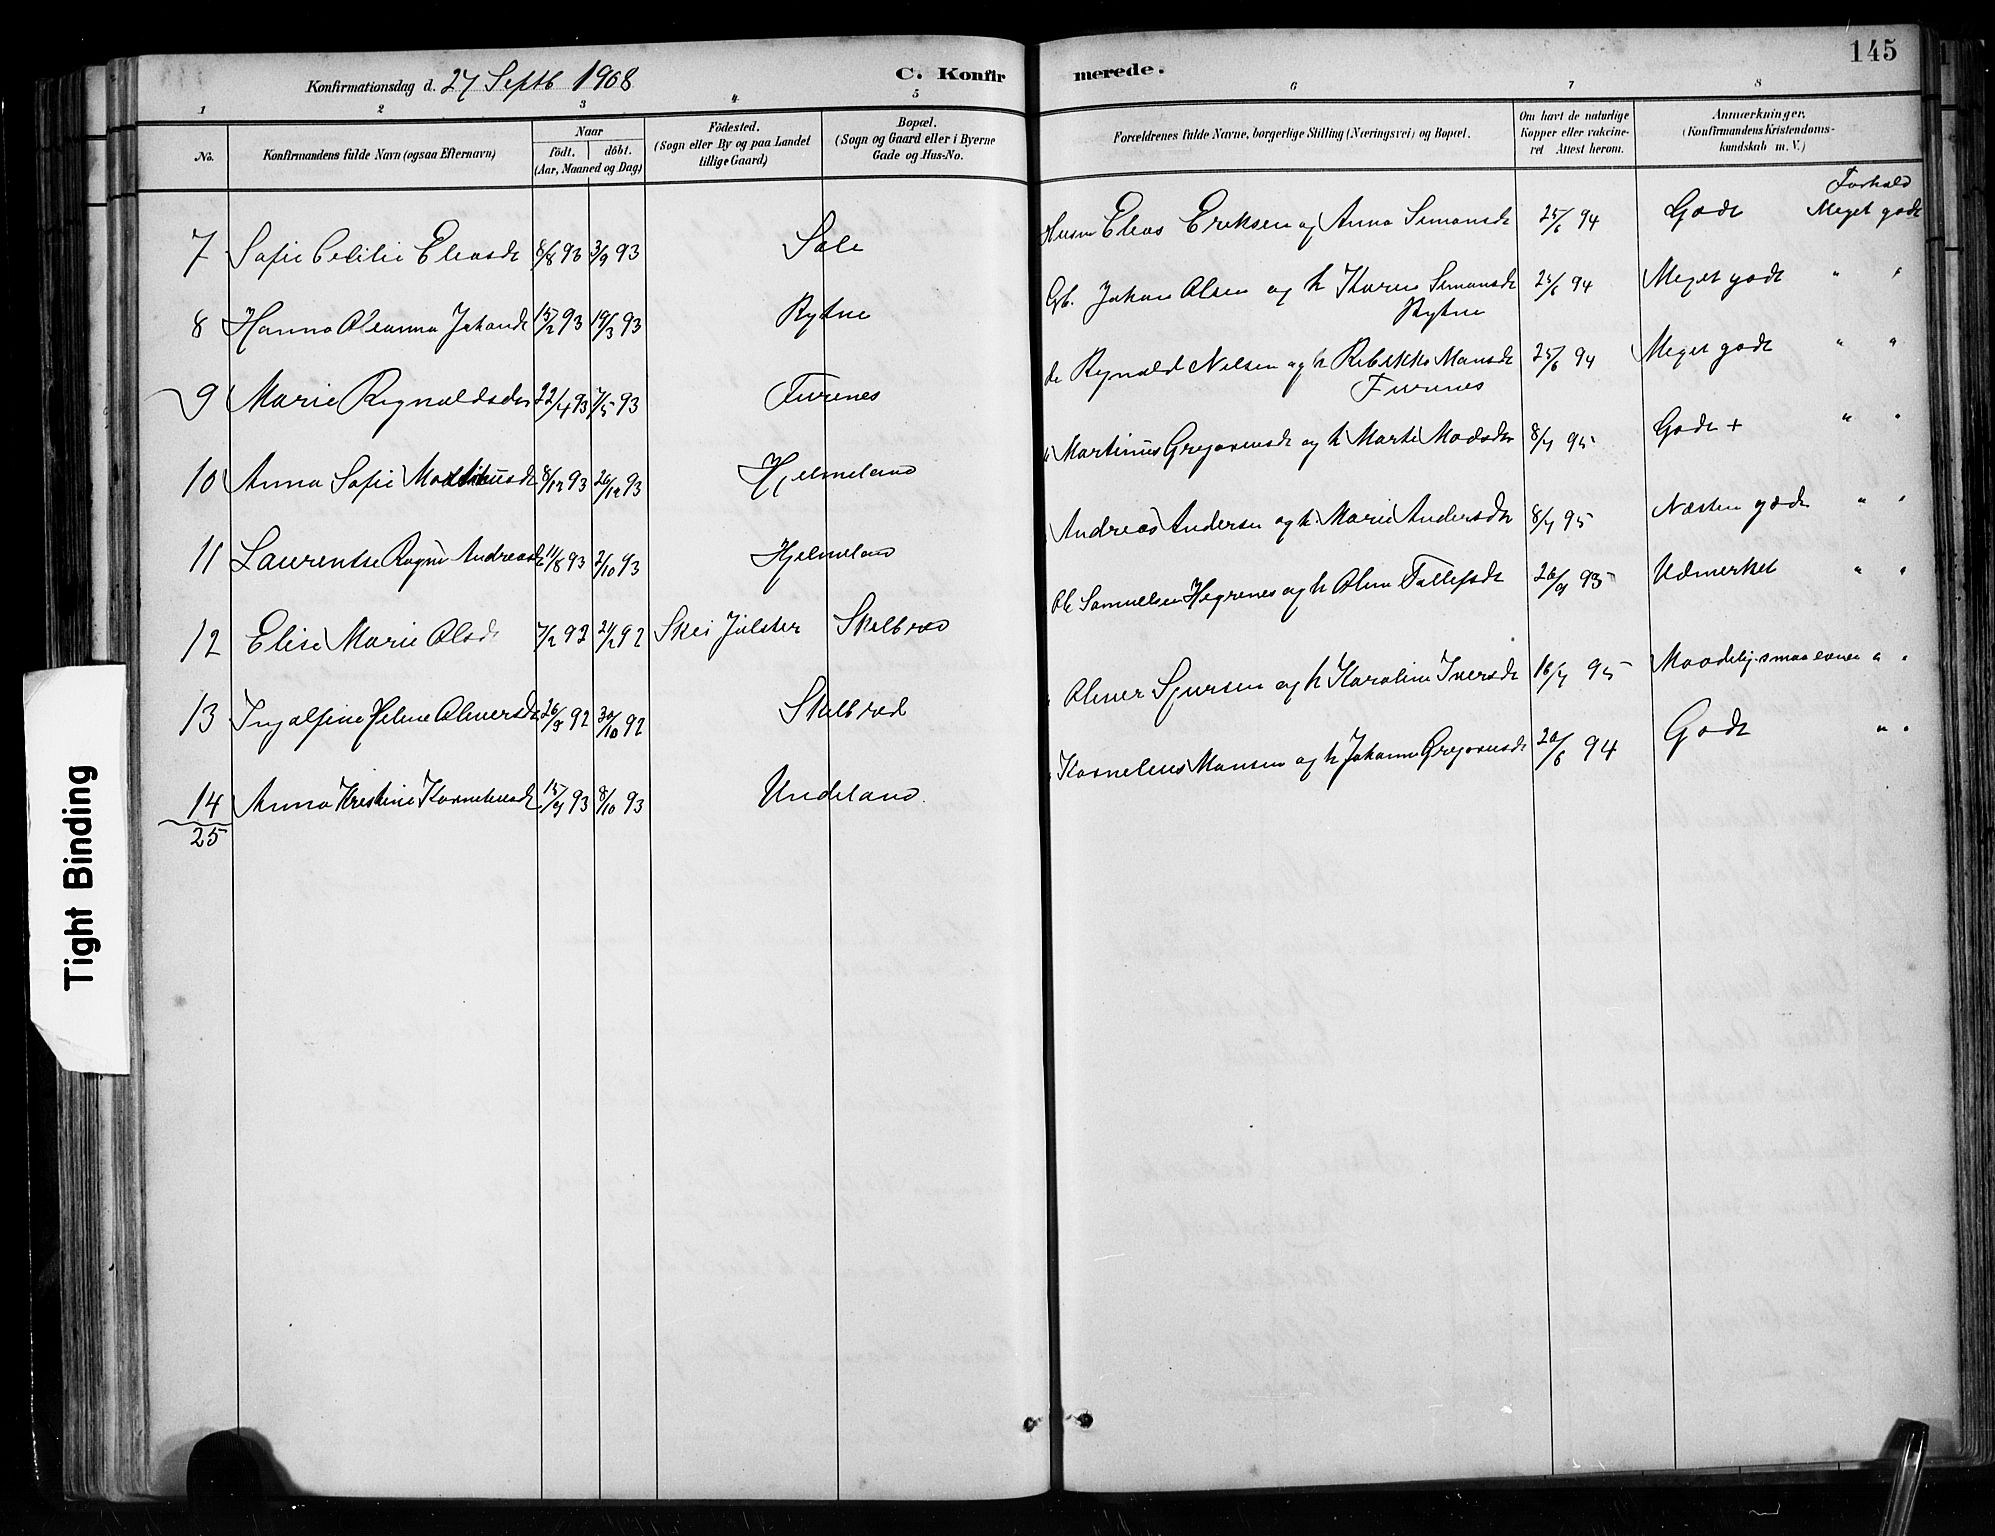 145
Konfirmationsdag d. 27 Septb 1908
C. Konfirmerede.
1 2 3 4 5 6 7 8
No.
Konfirmandens fulde Navn (ogsaa Efternavn)
Naar
födt. döbt.
(Aar, Maaned og Dag)
Födested.
(Sogn eller By og paa Landet
tillige Gaard)
Bopæl.
(Sogn og Gaard eller i Byerne
Gade og Hus-No.
Forældrenes fulde Navne, borgerlige Stilling (Næringsvei) og Bopæl.
Om havt de naturlige
Kopper eller vakcine-
ret Attest herom.
Anmærkninger,
(Konfirmandens Kristendoms-
kundskab m. V.)
Forhold
7 Sofie Celilie Eliasdt 8/8 93 3/9 93 Sole Husm Elias Eriksen og Anna Simonsdt 25/6 94 Godt Meget godt
8 Hanna Oleanna Johansdt 15/2 93 19/3 93 Rytne Gb. Johan Olsen og h Karen Simonsdt 25/6 94 Meget godt " "
Rytne
9 Marie Regnaldsdtr 22/4 93 7/5 93 Furenes do Regnald Nilsen og h Rebekka Monsdt 25/6 94 Meget godt " "
Furenes
10 Anna Sofie Martinusdt 8/12 93 26/12 93 Hjelmeland " Martinus Gregoriusdt og h Marte Madsdtr 8/7 95 Godt + " "
11 Laurentse Ragni Andreasdt 11/8 93 2/10 93 Hjelmeland Andreas Andersen og h. Marie Andersdtr 8/7 95 Næsten godt " "
12 Elise Marie Olsdt 7/2 92 21/2 92 Skei Jølster Skilbred Ole Samuelsen Hegrenes og h Oline Tollefsdt 26/9 95 Udmerket " "
13 Ingolfine Helene Olinersdt 26/9 92 30/10 92 Skilbred Oliner Sjursen og h Karoline Iversdt 16/7 95 Maadelig smaa evner " "
14 Anna Kristine Korneliusdt 15/9 93 8/10 93 Undeland Kornelius Monsen og h Johanne Gregoriusdt 20/6 94 Godt " "
25
Tight Binding